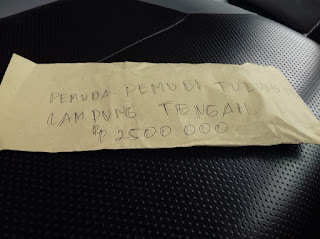 PEMUDA PEMUDI
LAMPUNG TENGAH
Rp 2500 000